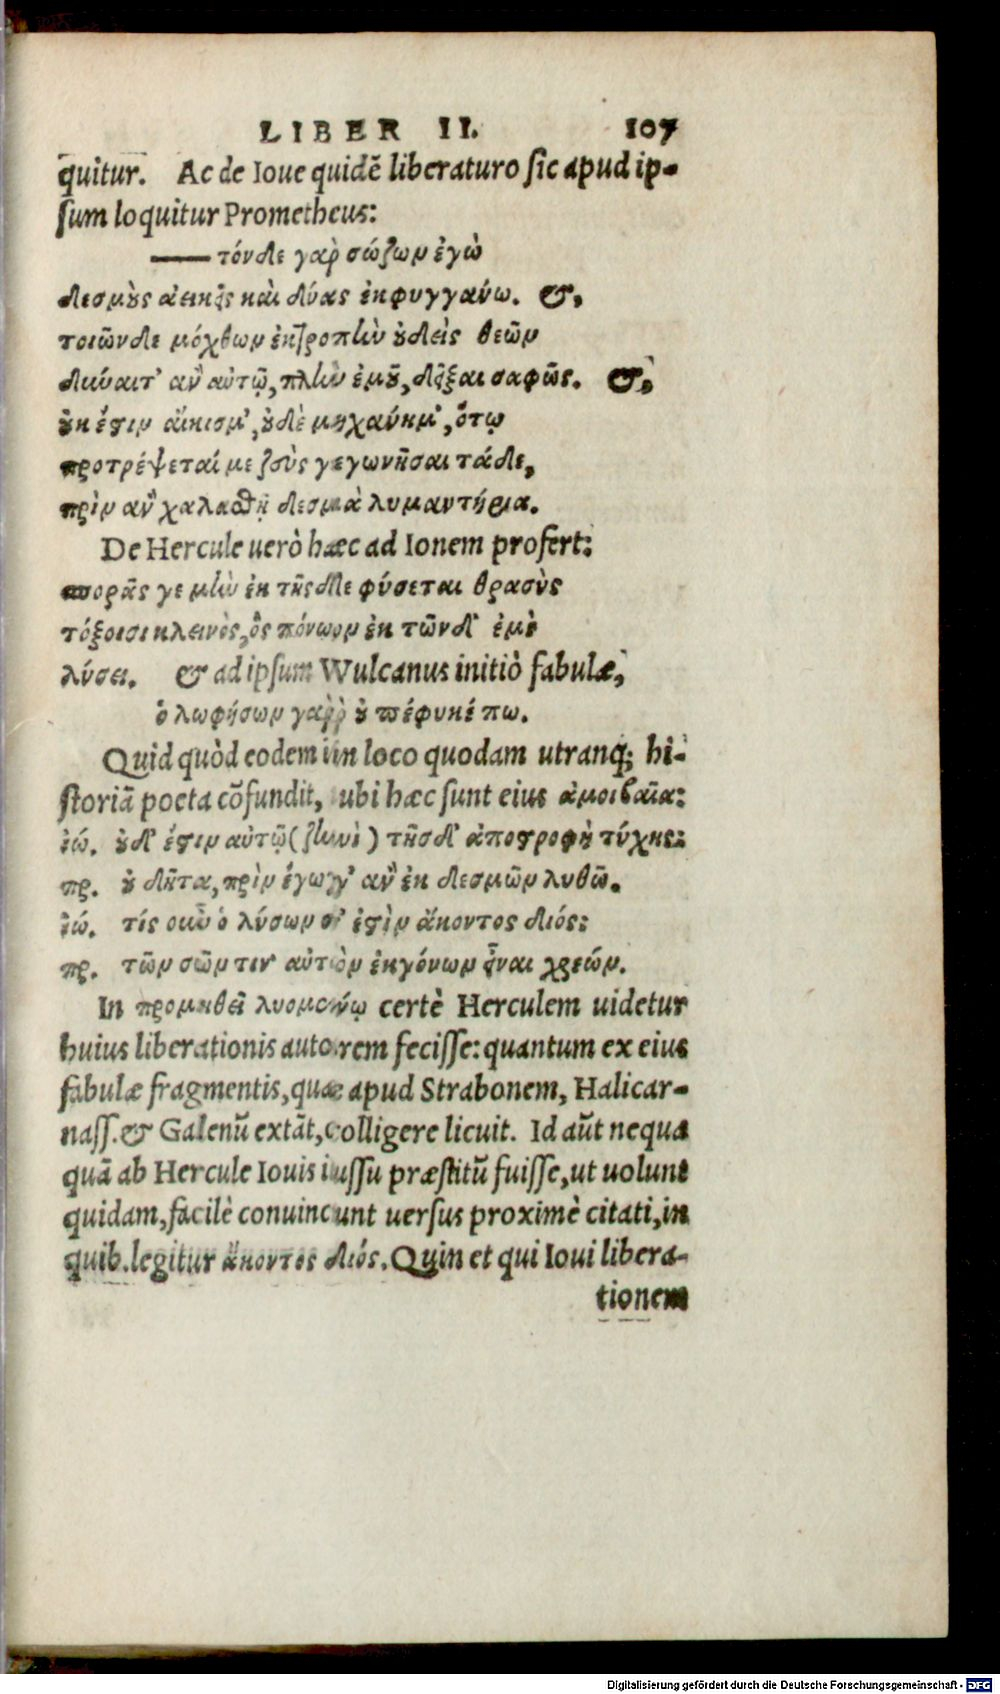 LIBER II. 107
quitur. Ac de Ioue quidē liberaturo sic apud ip-
sum loquitur Prometheus:
— τόνδε γαρ̀ σώζωμ ἐγὼ
δεσμȣ̀ς ἀεικεῖς καὶ δύας ἐκφυγγανω. &,
τοιῶνδε μόχθωμ ἐκτροπlὼ ȣ̓δεὶς θεῶμ
δωύαιτ' ἀν αὐτῷ, πλlὼ ἐμȣ͂, δεῖξαι σαφῶς. &,
ȣ̓κ ἔστιμ ἄικισμ', ȣ̓δὲ μηχανημ', ὅτῳ
προτρέψεταί με ζεὺς γεγωνῆσαι τάδε,
πρὶμ ἀν χαλασθῇ δεσμὰ λυμαντήρια.
De Hercule uerò hæc ad Ionem profert:
σπορᾶς γε μlὼ ἐκ τῆςδε φύσεται θρασὺς
τόξοισι κλεινὸς, ὃς πόνωμ ἐκ τῶνδ' ἐμὲ
λύσει. & ad ipsum Wulcanus initiò fabulæ,
ὁ λωφήσωμ γαρ̀ ȣ̓ πέφυκέ πω.
Quid quòd eodem in loco quodam utranq; hi-
storiā poeta cōfundit, ubi hæc sunt eius ἀμοιβαῖα:
ἰώ. ȣ̓δ' ἔστιμ αὐτῷ (ζlωὶ) τῆσδ' ἀποστροφὴ τύχης:
πρ. ȣ̓ δῆτα, πρὶμ ἔγωγ' ἀν ἐκ δεσμῶμ λυθῶ.
ἰώ. τίς οὖν ὁ λύσωμ σ' ἐστὶμ ἄκοντος διός:
πρ. τῶμ σῶμ τιν' αὐτὸμ ἐκγόνωμ εἶναι χρεώμ.
In προμηθεῖ λυομένῳ certè Herculem uidetur
huius liberationis autorem fecisse: quantum ex eius
fabulæ fragmentis, quæ apud Strabonem, Halicar-
nass. & Galenū extāt, colligere licuit. Id aūt nequa
quā ab Hercule Iouis iussu præstitū fuisse, ut uolunt
quidam, facilè conuincunt uersus proximè citati, in
quib. legitur ἄκοντος διός. Quin et qui Ioui libera-
tionem
Digitalisierung gefördert durch die Deutsche Forschungsgemeinschaft - DFG